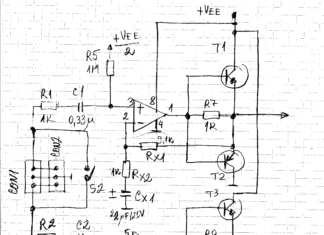 +VEE
+VEE
2
T1
R5
1M
R1
C1
3
8
1
R7
1K
0,33μ
2
4
1K
0,1K
RX1
COM1
COM2
S2
1K
RX2
T2
T3
+
CX1
22μF/25V
R2
C2